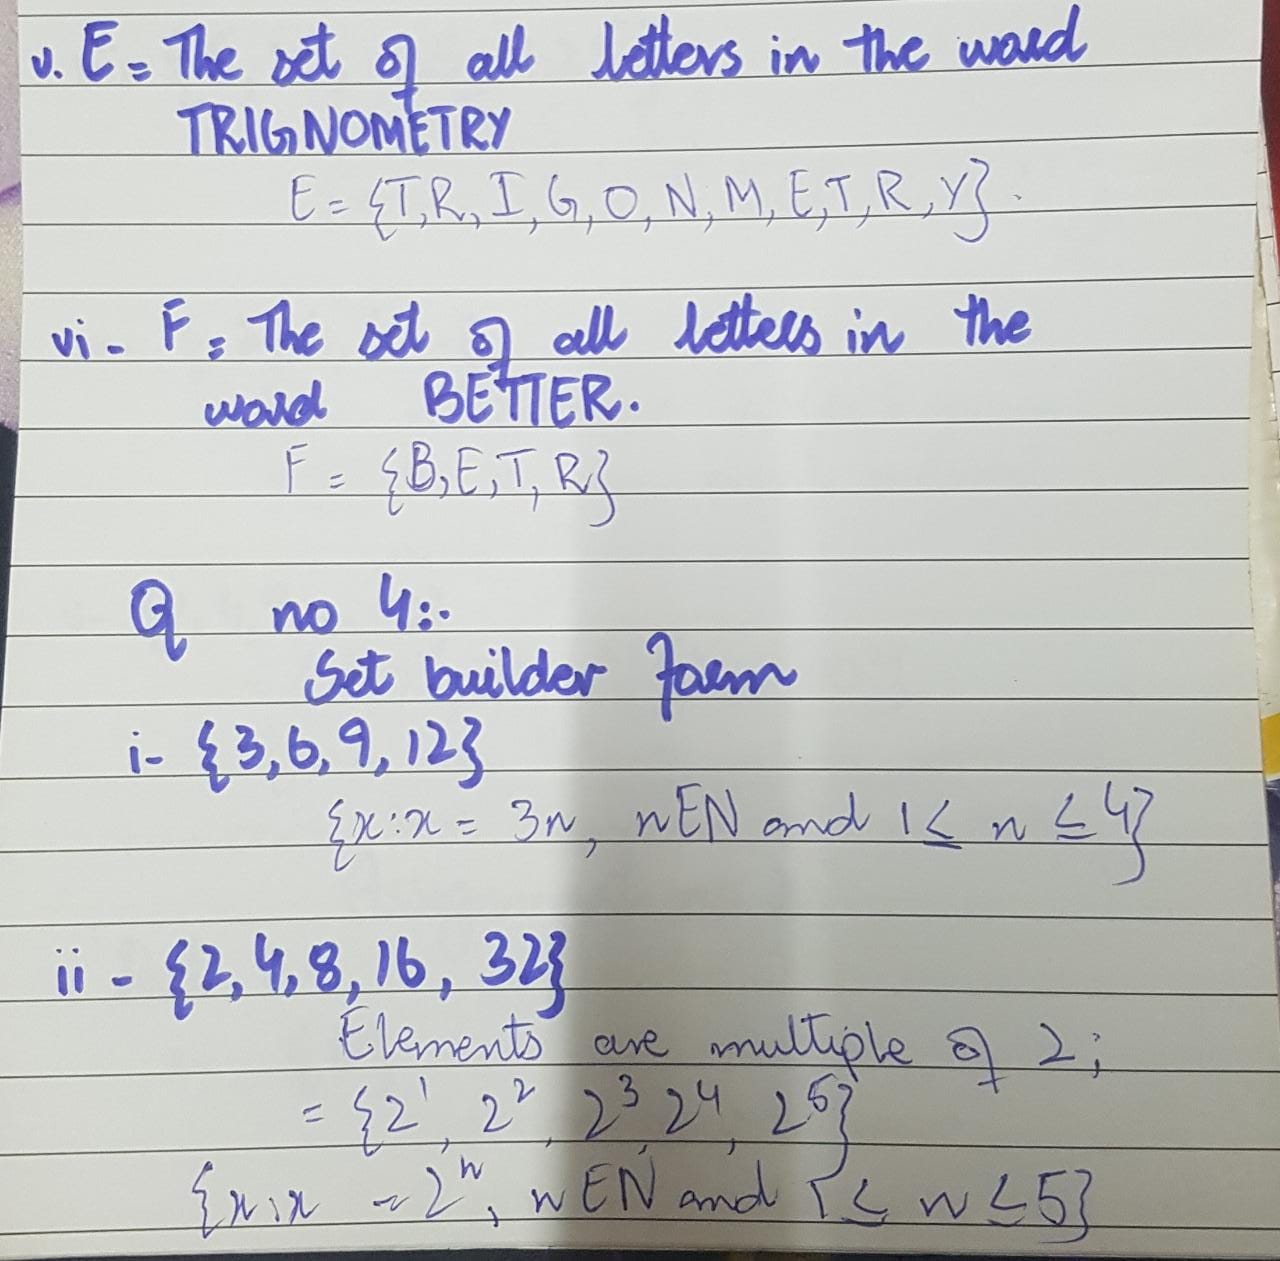 v. E = The set of all letters in the word
TRIGNOMETRY
E = {T,R, I, G, O, N, M, E,T, R, Y}.
vi - F = The set of all letters in the
word BETTER.
F = {B, E, T, R}
Q no 4:-
Set builder form
i- {3, 6, 9, 12}
{x : x = 3n, n∈N and 1 ≤ n ≤ 4}
ii - {2, 4, 8, 16, 32}
Elements are multiple of 2;
= {2¹, 2², 2³, 2⁴, 2⁵}
{x : x = 2ⁿ, n∈N and 1 ≤ n ≤ 5}